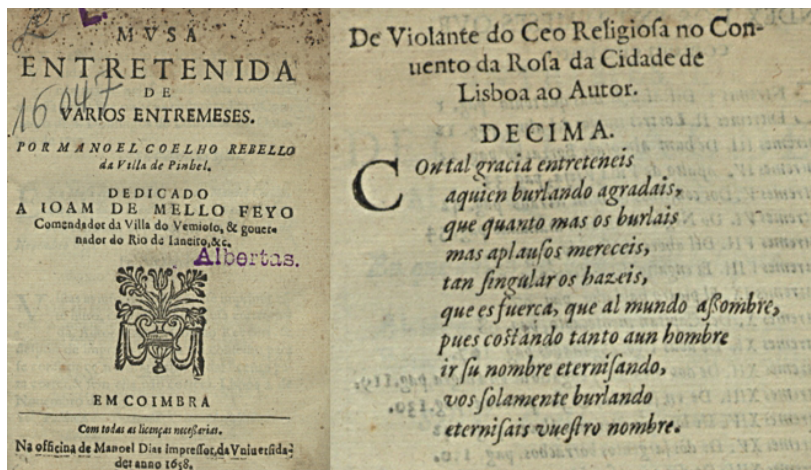 MVSA
ENTRETENIDA
DE
VARIOS ENTREMESES.
POR MANOEL COELHO REBELLO
da Villa de Pinhel.
DEDICADO
A IOAM DE MELLO FEYO
Comendador da Villa do Vemioso, & gouer-
nador do Rio de Ianeiro, &c.
Albertas.
16047
EM COIMBRA
Com todas as licenças necessarias.
Na officina de Manoel Dias impressor da Vniuersida-
de: anno 1658.
De Violante do Ceo Religiosa no Con-
uento da Rosa da Cidade de
Lisboa ao Autor.
DECIMA.
Con tal gracia entreteneis
aquien burlando agradais,
que quanto mas os burlais
mas aplausos mereceis,
tan singular os hazeis,
que es fuerca, que al mundo assombre,
pues costando tanto aun hombre
ir su nombre eternisando,
vos solamente burlando
eternisais vuestro nombre.